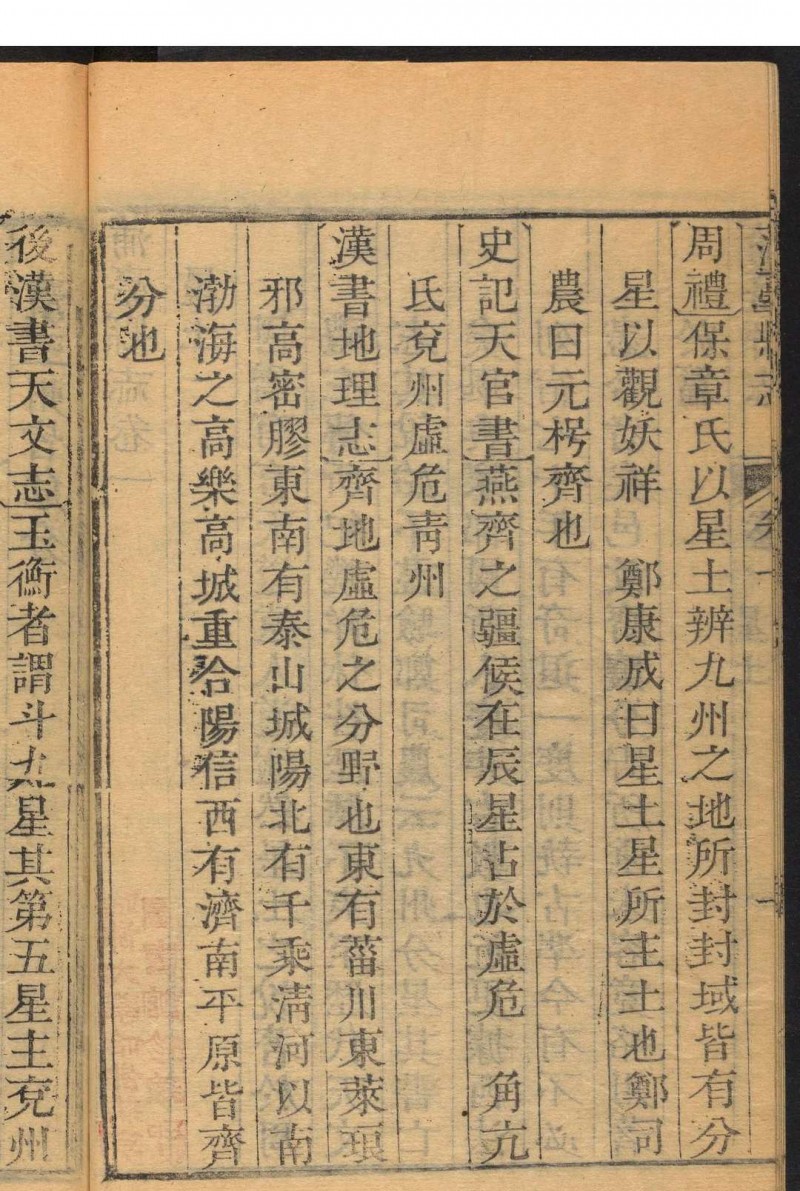 周禮保章氏以星土辨九州之地所封封域皆有分
星以觀妖祥　鄭康成曰星土星所主土也鄭司
農曰元枵齊也
史記天官書燕齊之疆候在辰星占於虛危　角亢
氐兗州虛危靑州
漢書地理志齊地虛危之分野也東有菑川東萊琅
邪高密膠東南有泰山城陽北有千乘淸河以南
渤海之高樂高城重合陽信西有濟南平原皆齊
分也
後漢書天文志玉衡者謂斗九星其第五星主兗州